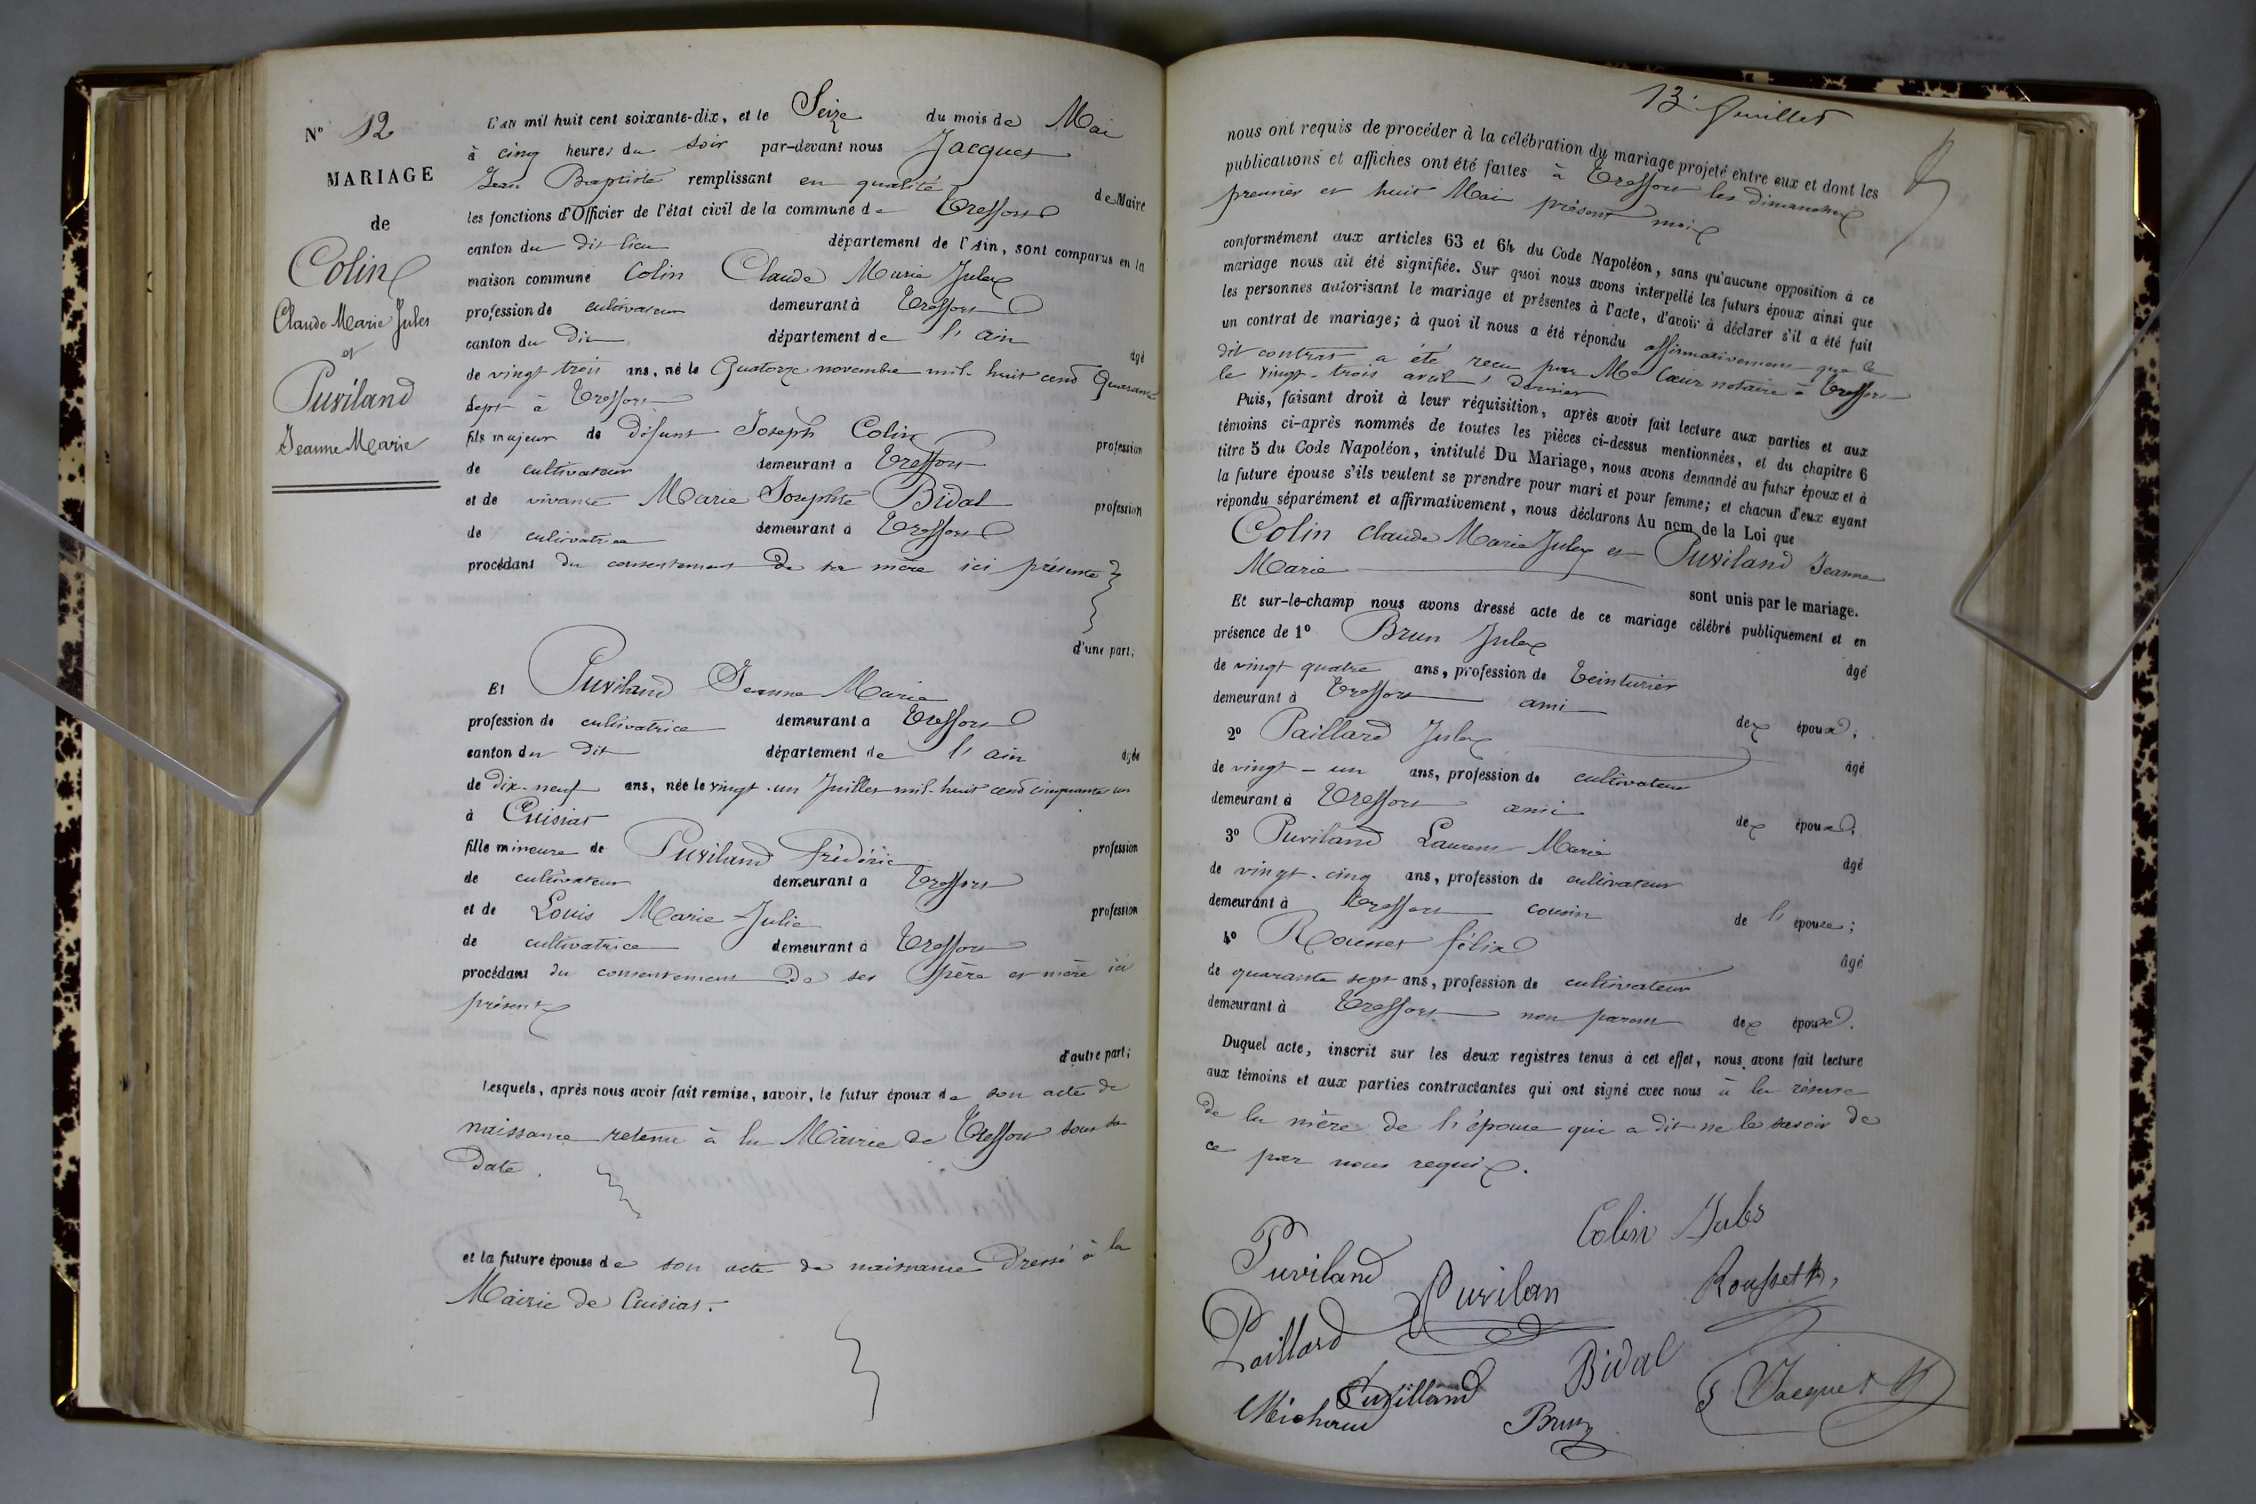 N° 12
MARIAGE
de
Colin
Claude Marie Jules
et
Puviland
Jeanne Marie
L'an mil huit cent soixante-dix, et le Seize du mois de Mai
à cinq heures du soir par-devant nous Jacques
Jean Baptiste remplissant en qualité de Maire
les fonctions d'Officier de l'état civil de la commune de Treffort
canton du dit lieu département de l'Ain, sont comparus en la
maison commune Colin Claude Marie Jules
profession de cultivateur demeurant à Treffort
canton du dit département de l'ain âgé
de vingt trois ans, né le Quatorze novembre mil huit cent Quarante
sept à Treffort
fils majeur de défunt Joseph Colin profession
de cultivateur demeurant à Treffort
et de vivante Marie Josephte Bidal profession
de cultivatrice demeurant à Treffort
procédant du consentement de sa mère ici présente
d'une part;
Et Puviland Jeanne Marie
profession de cultivatrice demeurant à Treffort
canton du dit département de l'ain âgée
de dix-neuf ans, née le vingt-un Juillet mil huit cent cinquante un
à Cuisiat
fille mineure de Puviland frédéric profession
de cultivateur demeurant à Treffort
et de Louis Marie Julie profession
de cultivatrice demeurant à Treffort
procédant du consentement de ses père et mère ici
présents
d'autre part;
Lesquels, après nous avoir fait remise, savoir, le futur époux de son acte de
naissance retenu à la Mairie de Treffort sous sa
date.
et la future épouse de son acte de naissance dressé à la
Mairie de Cuisiat.
13e feuillet
nous ont requis de procéder à la célébration du mariage projeté entre eux et dont les
publications et affiches ont été faites à Treffort les dimanches
premier et huit Mai présent mois
conformément aux articles 63 et 64 du Code Napoléon, sans qu'aucune opposition à ce
mariage nous ait été signifiée. Sur quoi nous avons interpellé les futurs époux ainsi que
les personnes autorisant le mariage et présentes à l'acte, d'avoir à déclarer s'il a été fait
un contrat de mariage; à quoi il nous a été répondu affirmativement que le
dit contrat a été reçu par Me Cœur notaire à Treffort
le vingt-trois avril dernier
Puis, faisant droit à leur réquisition, après avoir fait lecture aux parties et aux
témoins ci-après nommés de toutes les pièces ci-dessus mentionnées, et du chapitre 6
titre 5 du Code Napoléon, intitulé Du Mariage, nous avons demandé au futur époux et à
la future épouse s'ils veulent se prendre pour mari et pour femme; et chacun d'eux ayant
répondu séparément et affirmativement, nous déclarons Au nom de la Loi que
Colin Claude Marie Jules et Puviland Jeanne
Marie sont unis par le mariage.
Et sur-le-champ nous avons dressé acte de ce mariage célébré publiquement et en
présence de 1° Brun Jules âgé
de vingt quatre ans, profession de teinturier
demeurant à Treffort ami des époux;
2° Paillard Jules âgé
de vingt-un ans, profession de cultivateur
demeurant à Treffort ami des époux;
3° Puviland Laurent Marie âgé
de vingt-cinq ans, profession de cultivateur
demeurant à Treffort cousin de l'épouse;
4° Rousset félix âgé
de quarante sept ans, profession de cultivateur
demeurant à Treffort non parent des époux.
Duquel acte, inscrit sur les deux registres tenus à cet effet, nous avons fait lecture
aux témoins et aux parties contractantes qui ont signé avec nous à la réserve
de la mère de l'épouse qui a dit ne le savoir de
ce par nous requis.
Colin Jules
Puviland
Puvilan
Rousset
Paillard
Bidal
Puvilland
Jacques
Michoud
Brun